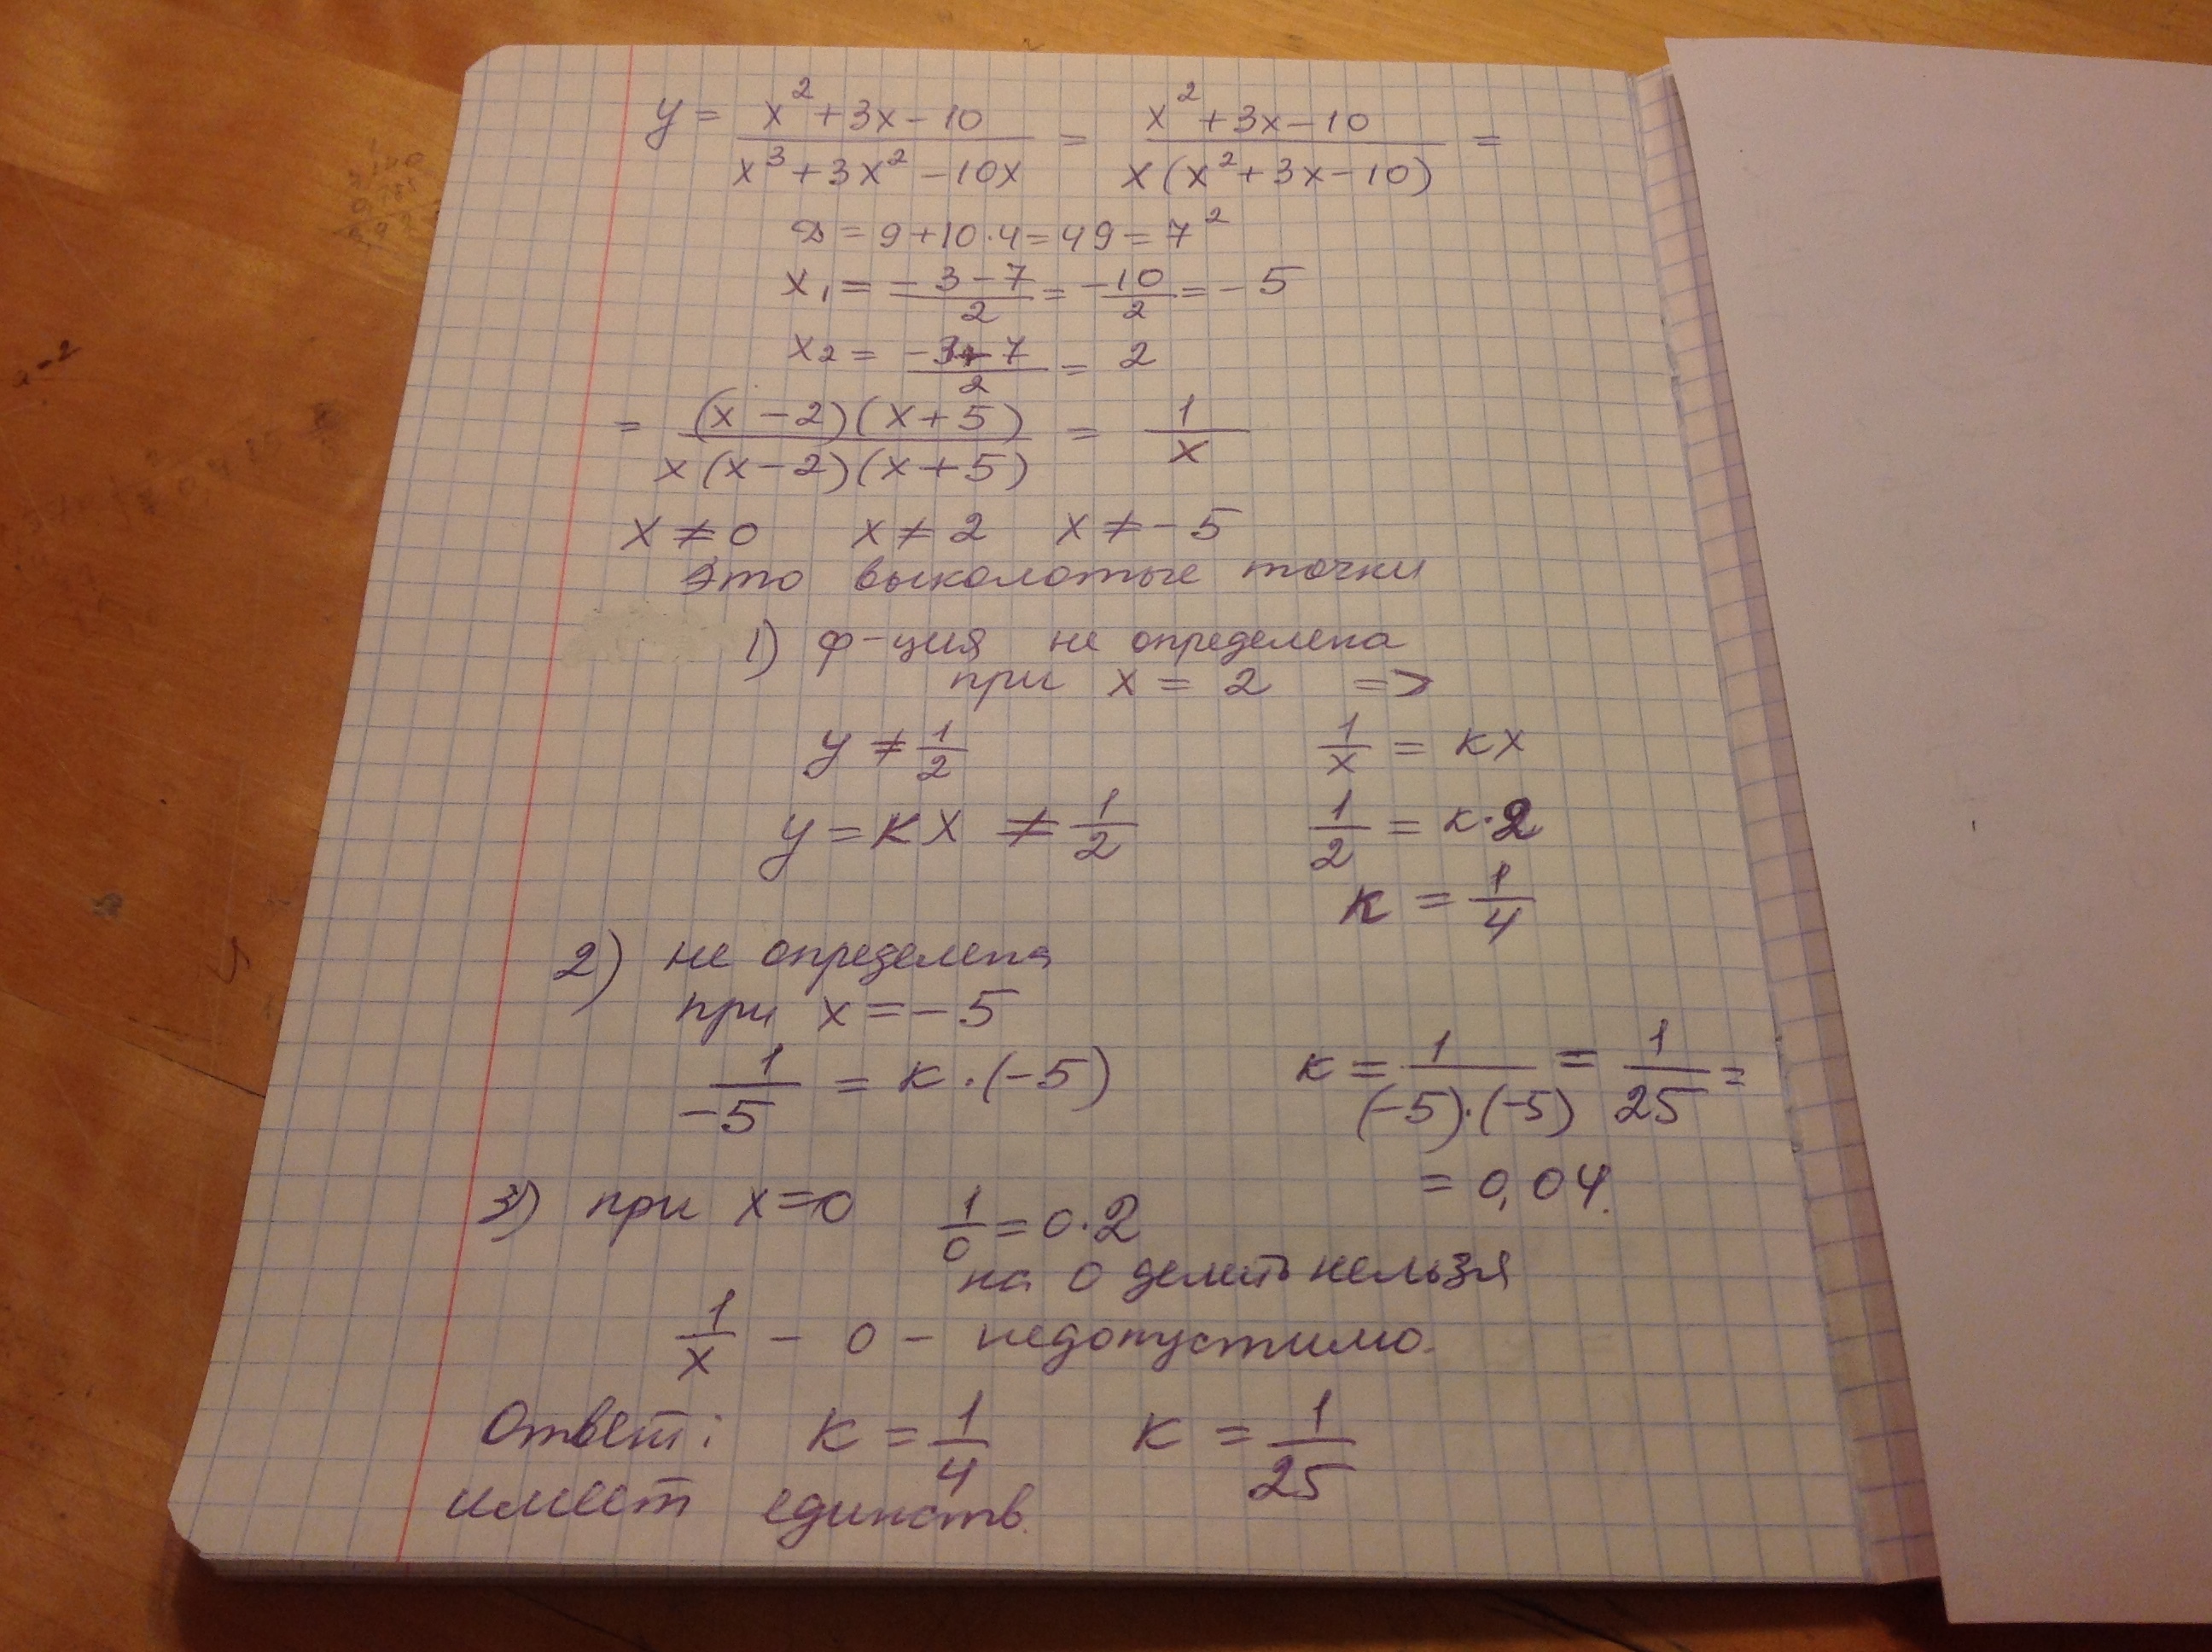 y = (x² + 3x - 10)/(x³ + 3x² - 10x) = (x² + 3x - 10)/(x(x² + 3x - 10)) =
D = 9 + 10·4 = 49 = 7²
x₁ = (-3 - 7)/2 = -10/2 = -5
x₂ = (-3 + 7)/2 = 2
= ((x - 2)(x + 5))/(x(x - 2)(x + 5)) = 1/x
x ≠ 0 x ≠ 2 x ≠ -5
Это выколотые точки
1) ф-ция не определена
при x = 2 =>
y ≠ 1/2 1/x = kx
y = kx ≠ 1/2 1/2 = k·2
k = 1/4
2) не определена
при x = -5
1/-5 = k·(-5) k = 1/((-5)·(-5)) = 1/25 =
= 0,04.
3) при x = 0 1/0 = 0·2
на 0 делить нельзя
1/x - 0 - недопустимо.
Ответ: k = 1/4 k = 1/25
имеет единств.